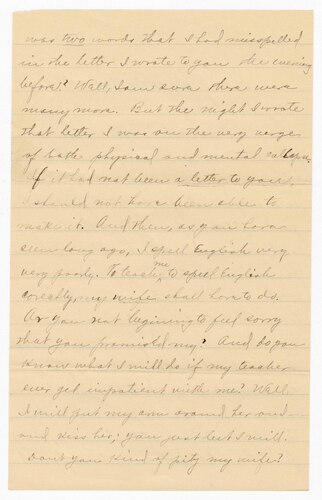 was two words that I had misspelled
in the letter I wrote to you the evening
before? Well, I am sure there were
many more. But the night I wrote
that letter I was on the very verge
of both physical and mental
If it had not been a letter to you,
I should not have been able to
make it. And then, as you have
seen long ago, I spell English very
very poorly. To teach me to spell English
corectly, my wife shall have to do.
Ar you not begining to feel sorry
that you promisId my? And do you
know what I will do if my teacher
ever get impatient with me? Well
I will put my arm around her and
and kiss her; you just bet I will.
Dont you kind of pity my wife?